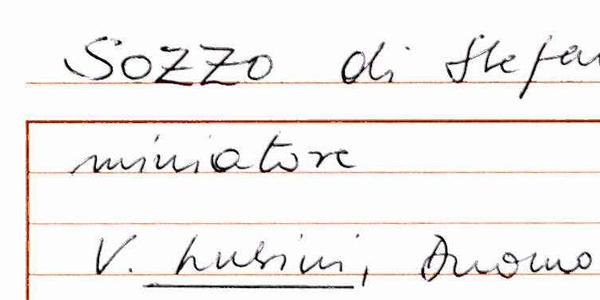 Sozzo di Stefan
miniatore
V. Lusini, Duomo